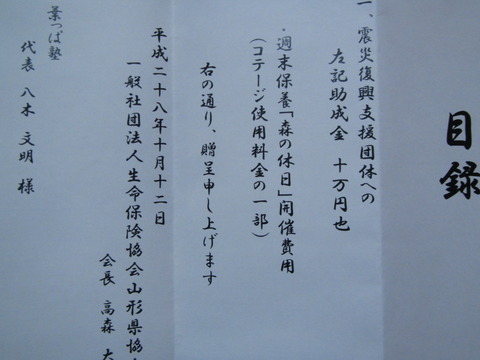 目録
一、震災復興支援団体への
左記助成金 十万円也
・週末保養「森の休日」開催費用
(コテージ使用料金の一部)
右の通り、贈呈申し上げます
平成二十八年十月十二日
一般社団法人生命保険協会山形県協
会長 高森 大
葉っぱ塾
代表 八木 文明 様